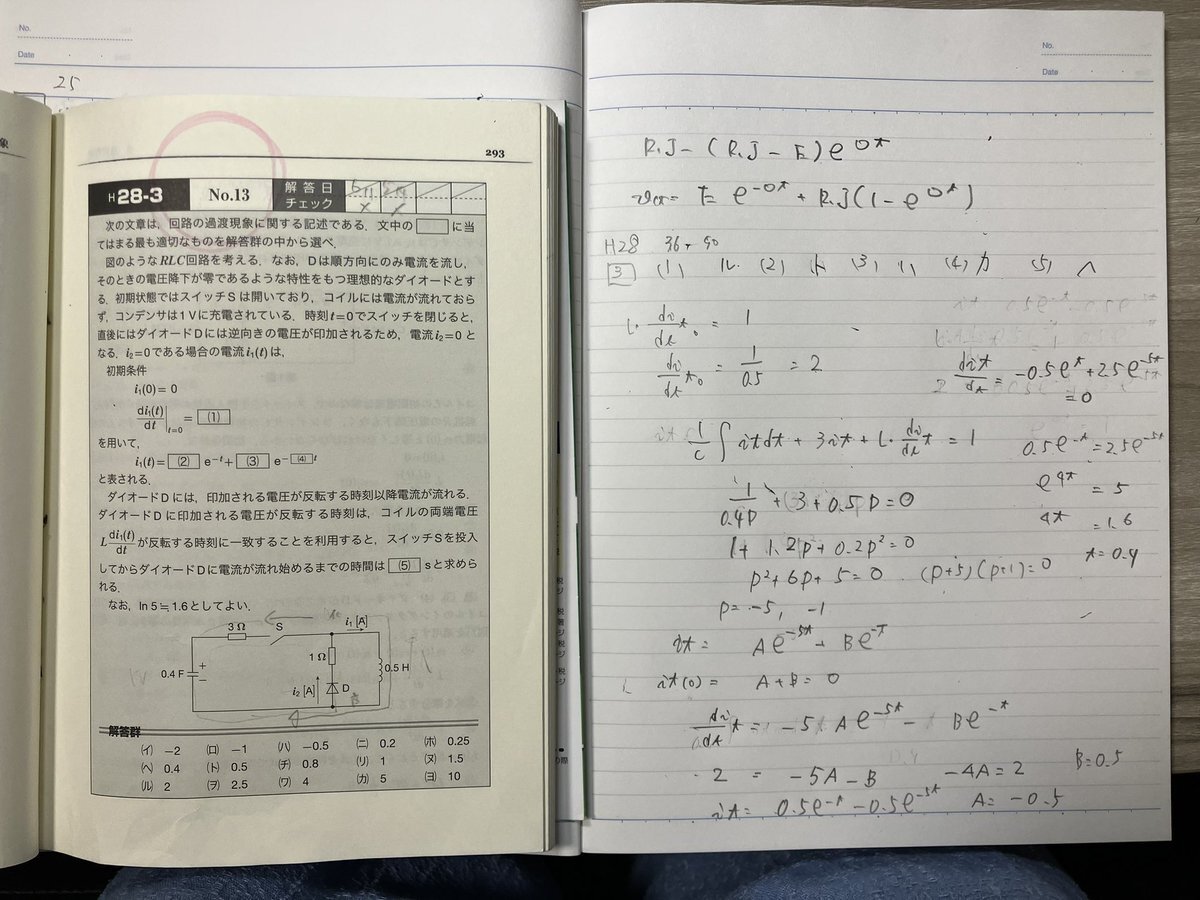 No.
Date
25
293
H28-3 No.13 解答日チェック
5/11 5/14
× ×
次の文章は，回路の過渡現象に関する記述である．文中の□に当
てはまる最も適切なものを解答群の中から選べ．
図のようなRLC回路を考える．なお，Dは順方向にのみ電流を流し，
そのときの電圧降下が零であるような特性をもつ理想的なダイオードとす
る．初期状態ではスイッチSは開いており，コイルには電流が流れておら
ず，コンデンサは1Vに充電されている．時刻t=0でスイッチを閉じると，
直後にはダイオードDには逆向きの電圧が印加されるため，電流i₂=0と
なる．i₂=0である場合の電流i₁(t)は，
初期条件
i₁(0)=0
di₁(t)/dt|t=0 = (1)
を用いて，
i₁(t)= (2) e^-t + (3) e^-(4)t
と表される．
ダイオードDには，印加される電圧が反転する時刻以降電流が流れる．
ダイオードDに印加される電圧が反転する時刻は，コイルの両端電圧
L di₁(t)/dt が反転する時刻に一致することを利用すると，スイッチSを投入
してからダイオードDに電流が流れ始めるまでの時間は (5) sと求めら
れる．
なお，ln 5≒1.6としてよい．
3Ω S i₁[A]
1Ω 0.5H
0.4F + −
i₂[A] D
解答群
(イ) −2 (ロ) −1 (ハ) −0.5 (ニ) 0.2 (ホ) 0.25
(ヘ) 0.4 (ト) 0.5 (チ) 0.8 (リ) 1 (ヌ) 1.5
(ル) 2 (ヲ) 2.5 (ワ) 4 (カ) 5 (ヨ) 10
No.
Date
R.J-(R.J-E)e^0t
E e^-0t + R.J(1-e^0t)
H28
3 (1) ル (2) ト (3) ハ (4) カ (5) ヘ
L・di/dt t₀ = 1
di/dt t₀ = 1/0.5 = 2
dit/dt = -0.5e^t + 2.5e^-5t
=0
1/C ∫ it dt + 3it + L・di/dt t = 1
0.5e^-t = 2.5e^-5t
1/0.4P + 3 + 0.5P = 0
e^4t = 5
1 + 1.2P + 0.2P² = 0
4t = 1.6
P² + 6P + 5 = 0 (P+5)(P+1)=0
t=0.4
P= -5, -1
it = Ae^-5t + Be^-t
it(0) = A+B=0
di/dt t = -5Ae^-5t - Be^-t
2 = -5A-B -4A=2 B=0.5
it = 0.5e^-t - 0.5e^-5t A= -0.5